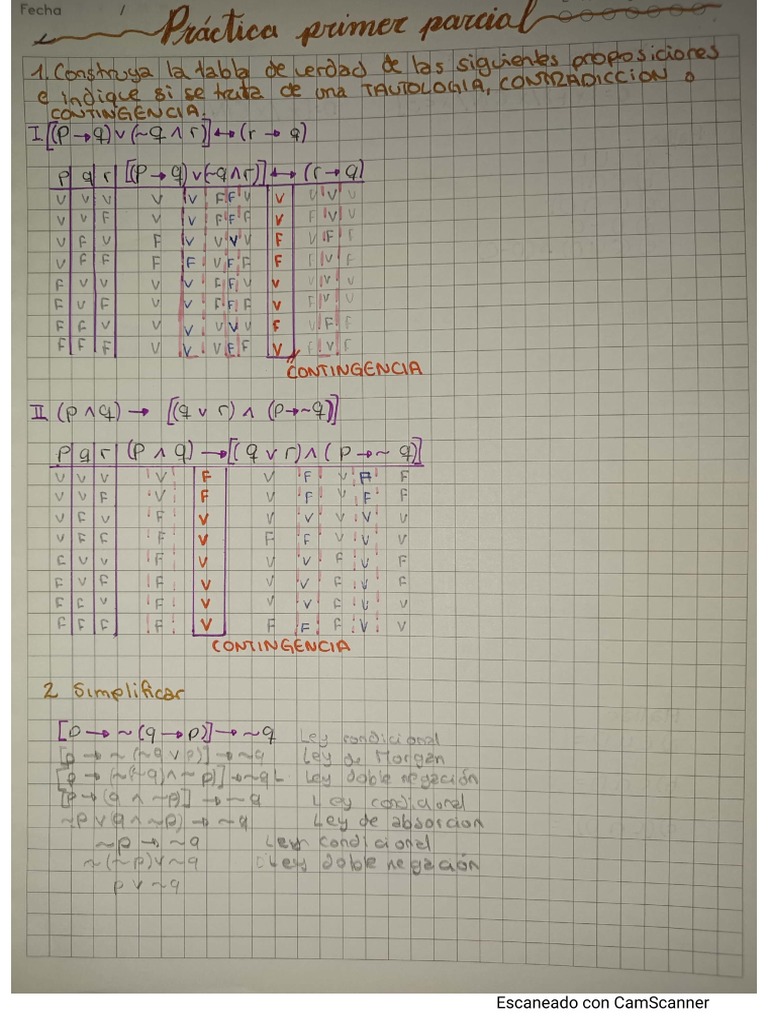 Fecha /
Práctica primer parcial
1. Construya la tabla de verdad de las siguientes proposiciones
e indique si se trata de una TAUTOLOGIA, CONTRADICCION o
CONTINGENCIA.
I [(P → q) ∨ (~q ∧ r)] ↔ (r → q)
p q r [(P → q) ∨ (~q ∧ r)] ↔ (r → q)
V V V V V F F V V V V V
V V F V V F F F V F V V
V F V F V V V V F V F F
V F F F F V F F F F V F
F V V V V F F V V V V V
F V F V V F F F V F V V
F F V V V V V V F V F F
F F F V V V F F V F V F
CONTINGENCIA
II (p ∧ q) → [(q ∨ r) ∧ (p → ~q)]
p q r (p ∧ q) → [(q ∨ r) ∧ (p → ~ q)]
V V V V F V F V F F
V V F V F V F V F F
V F V F V V V V V V
V F F F V F F V V V
F V V F V V V F V F
F V F F V V V F V F
F F V F V V V F V V
F F F F V F F F V V
CONTINGENCIA
2 Simplificar
[p → ~(q → p)] → ~q Ley condicional
[p → ~(~q ∨ p)] → ~q Ley de Morgan
[p → (~(~q) ∧ ~p)] → ~q Ley doble negación
[p → (q ∧ ~p)] → ~q Ley condicional
~p ∨ (q ∧ ~p) → ~q Ley de absorcion
~p → ~q Ley condicional
~(~p) ∨ ~q Ley doble negación
p ∨ ~q
Escaneado con CamScanner